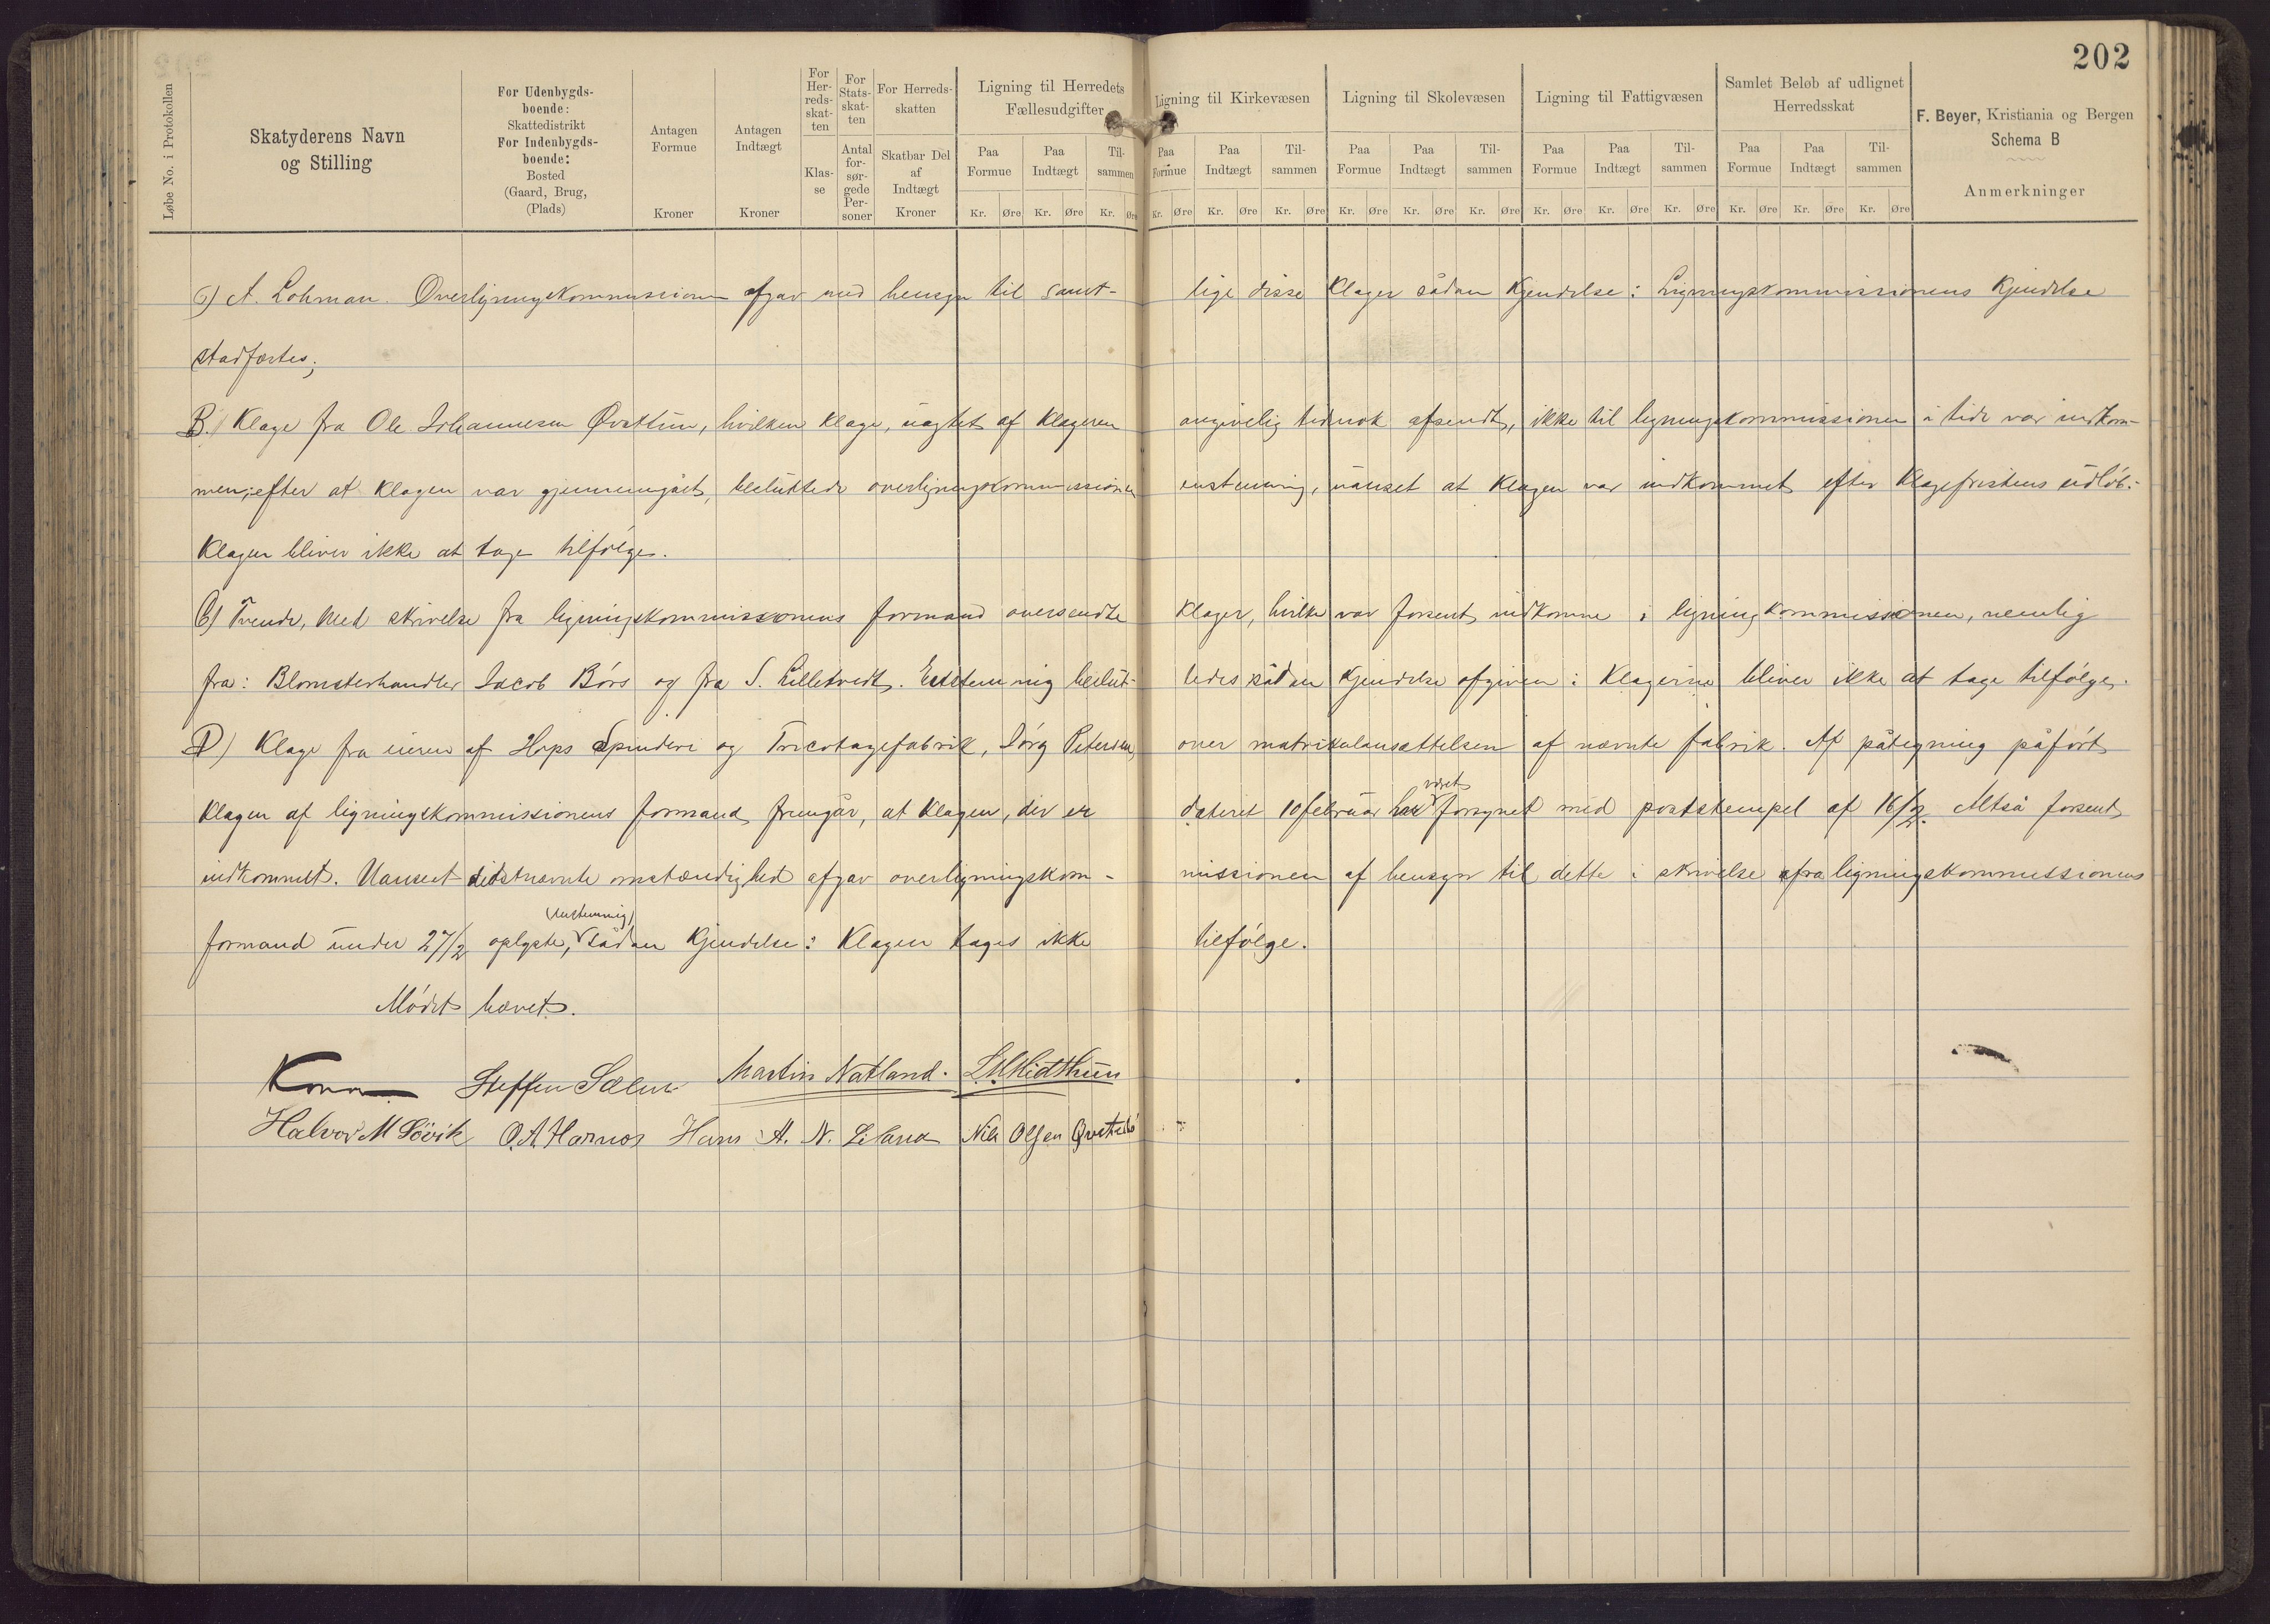 202
Løbe No. i Protokollen
Skatyderens Navn og Stilling
For Udenbygds-boende: Skattedistrikt For Indenbygds-boende: Bosted (Gaard, Brug, (Plads)
Antagen Formue Kroner
Antagen Indtægt Kroner
For Her-reds-skat-ten Klas-se
For Stats-skat-ten Antal for-sør-gede Per-soner
For Herreds-skatten Skatbar Del af Indtægt Kroner
Ligning til Herredets Fællesudgifter
Paa Formue Paa Indtægt Til-sammen
Kr. Øre Kr. Øre Kr. Øre
Ligning til Kirkevæsen
Paa Formue Paa Indtægt Til-sammen
Kr. Øre Kr. Øre Kr. Øre
Ligning til Skolevæsen
Paa Formue Paa Indtægt Til-sammen
Kr. Øre Kr. Øre Kr. Øre
Ligning til Fattigvæsen
Paa Formue Paa Indtægt Til-sammen
Kr. Øre Kr. Øre Kr. Øre
Samlet Beløb af udlignet Herredsskat
Paa Formue Paa Indtægt Til-sammen
Kr. Øre Kr. Øre Kr. Øre
F. Beyer, Kristiania og Bergen
Schema B
Anmerkninger
6) A. Lohman. Overligningskommissionen afgav med hensyn til samt- lige disse klager sådan Kjendelse: Ligningskommissionens Kjendelse
stadfæstes;
B.) Klage fra Ole Johannesen Øvsttun, hvilken klage, uagtet af klageren angivelig tidnok afsendt, ikke til ligningskommissionen i tide var indkom-
men; efter at klagen var gjennemgået, besluttede overligningskommissionen enstemmig, uanset at klagen var indkommet efter klagefristens udløb:
Klagen bliver ikke at tage tilfølge.
C) Tvende, med skrivelse fra ligningskommissionens formand oversendte klager, hvilke var forsent indkomne i ligningskommissionen, nemlig
fra: Blomsterhandler Jacob Børs og fra S. Lilletvedt. Enstemmig beslut- tedes sådan kjendelse afgiven: Klagerne bliver ikke at tage tilfølge.
D) Klage fra eieren af Hops Spinderi og Tricotagefabrik, Jørg Petersen, over matrikulansættelsen af nævnte fabrik. Af påtegning påført
klagen af ligningskommissionens formand fremgår, at klagen, der er dateret 10 februar har været forsynet med poststempel af 16/2. Altså forsent
indkommet. Uanseet sidstnævnte omstændighed afgav overligningskom- missionen af hensyn til dette i skrivelse fra ligningskommissionens
formand under 27/2 oplyste, (enstemmig) sådan Kjendelse: Klagen tages ikke tilfølge.
Mødet hævet.
Steffen Sælen Martin Natland. L M Midtthun
Halvor M Søvik O. A. Hamos Hans A. N. Liland Nils Olsen